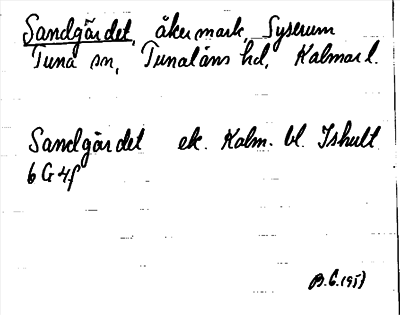 Sandgärdet, åkermark, Syserum
Tuna sn, Tunaläns hd, Kalmar l.
Sandgärdet ek. Kalm. bl. Ishult
6 G 4f
B.G. 1951